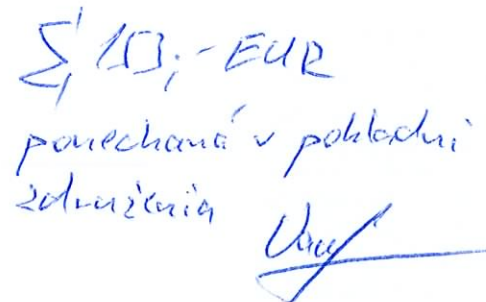 Σ, 153,- EUR
ponechaná v pokladni
združenia